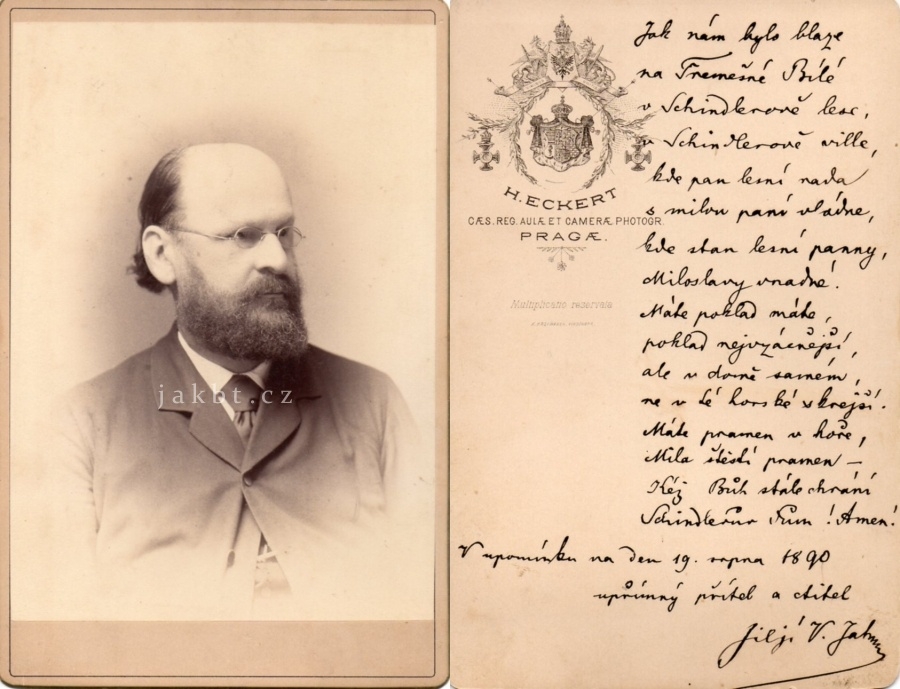 jakbt.cz
H. ECKERT
CÆS. REG. AULÆ ET CAMERÆ PHOTOGR.
PRAGÆ.
Multiplicatio reservata
Jak nám bylo blaze
na Třemešné Bílé
v Schindlerově lese,
v Schindlerově wille,
kde pan lesní rada
s milou paní vládne,
kde stan lesní panny,
Miloslavy vnadné.
Máte poklad máte,
poklad nejvzácnější,
ale v domě samém,
ne v té horské skrejši.
Máte pramen v hoře,
Mila štěstí pramen –
Kéž Bůh stále chrání
Schindlerův Tum! Amen!
V upomínku na den 19. srpna 1890
upřímný přítel a ctitel
Jiljí V. Jahn